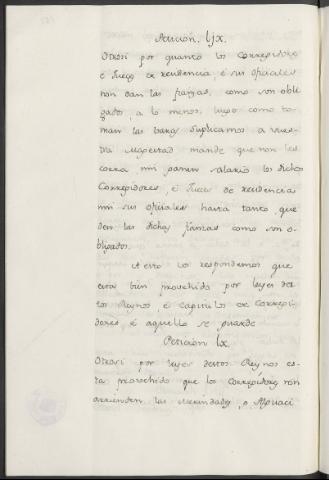 Petición. ljx.
Otrosi por quanto los Corregidores
e Jueces de residencia, é sus oficiales
non dan las fianzas, como son obli
gados, a lo menos, luego como to-
man las varas suplicamos a vues-
tra Magestad mande que non les
corra, nin paren salario los dichos
Corregidores, é Jueces de residencia
nin sus oficiales hasta tanto que
den las dichas fianzas como son o-
bligados.
A esto vos respondemos que
esta bien proveehido por leyes des-
tos Reynos, é Capitulos de Corregi-
dores, é aquello se guarde
Petición lx.
Otrosi por leyes destos Reynos es-
ta proveehido que los Corregidores non
arrienden las Merindades, o Alguaci